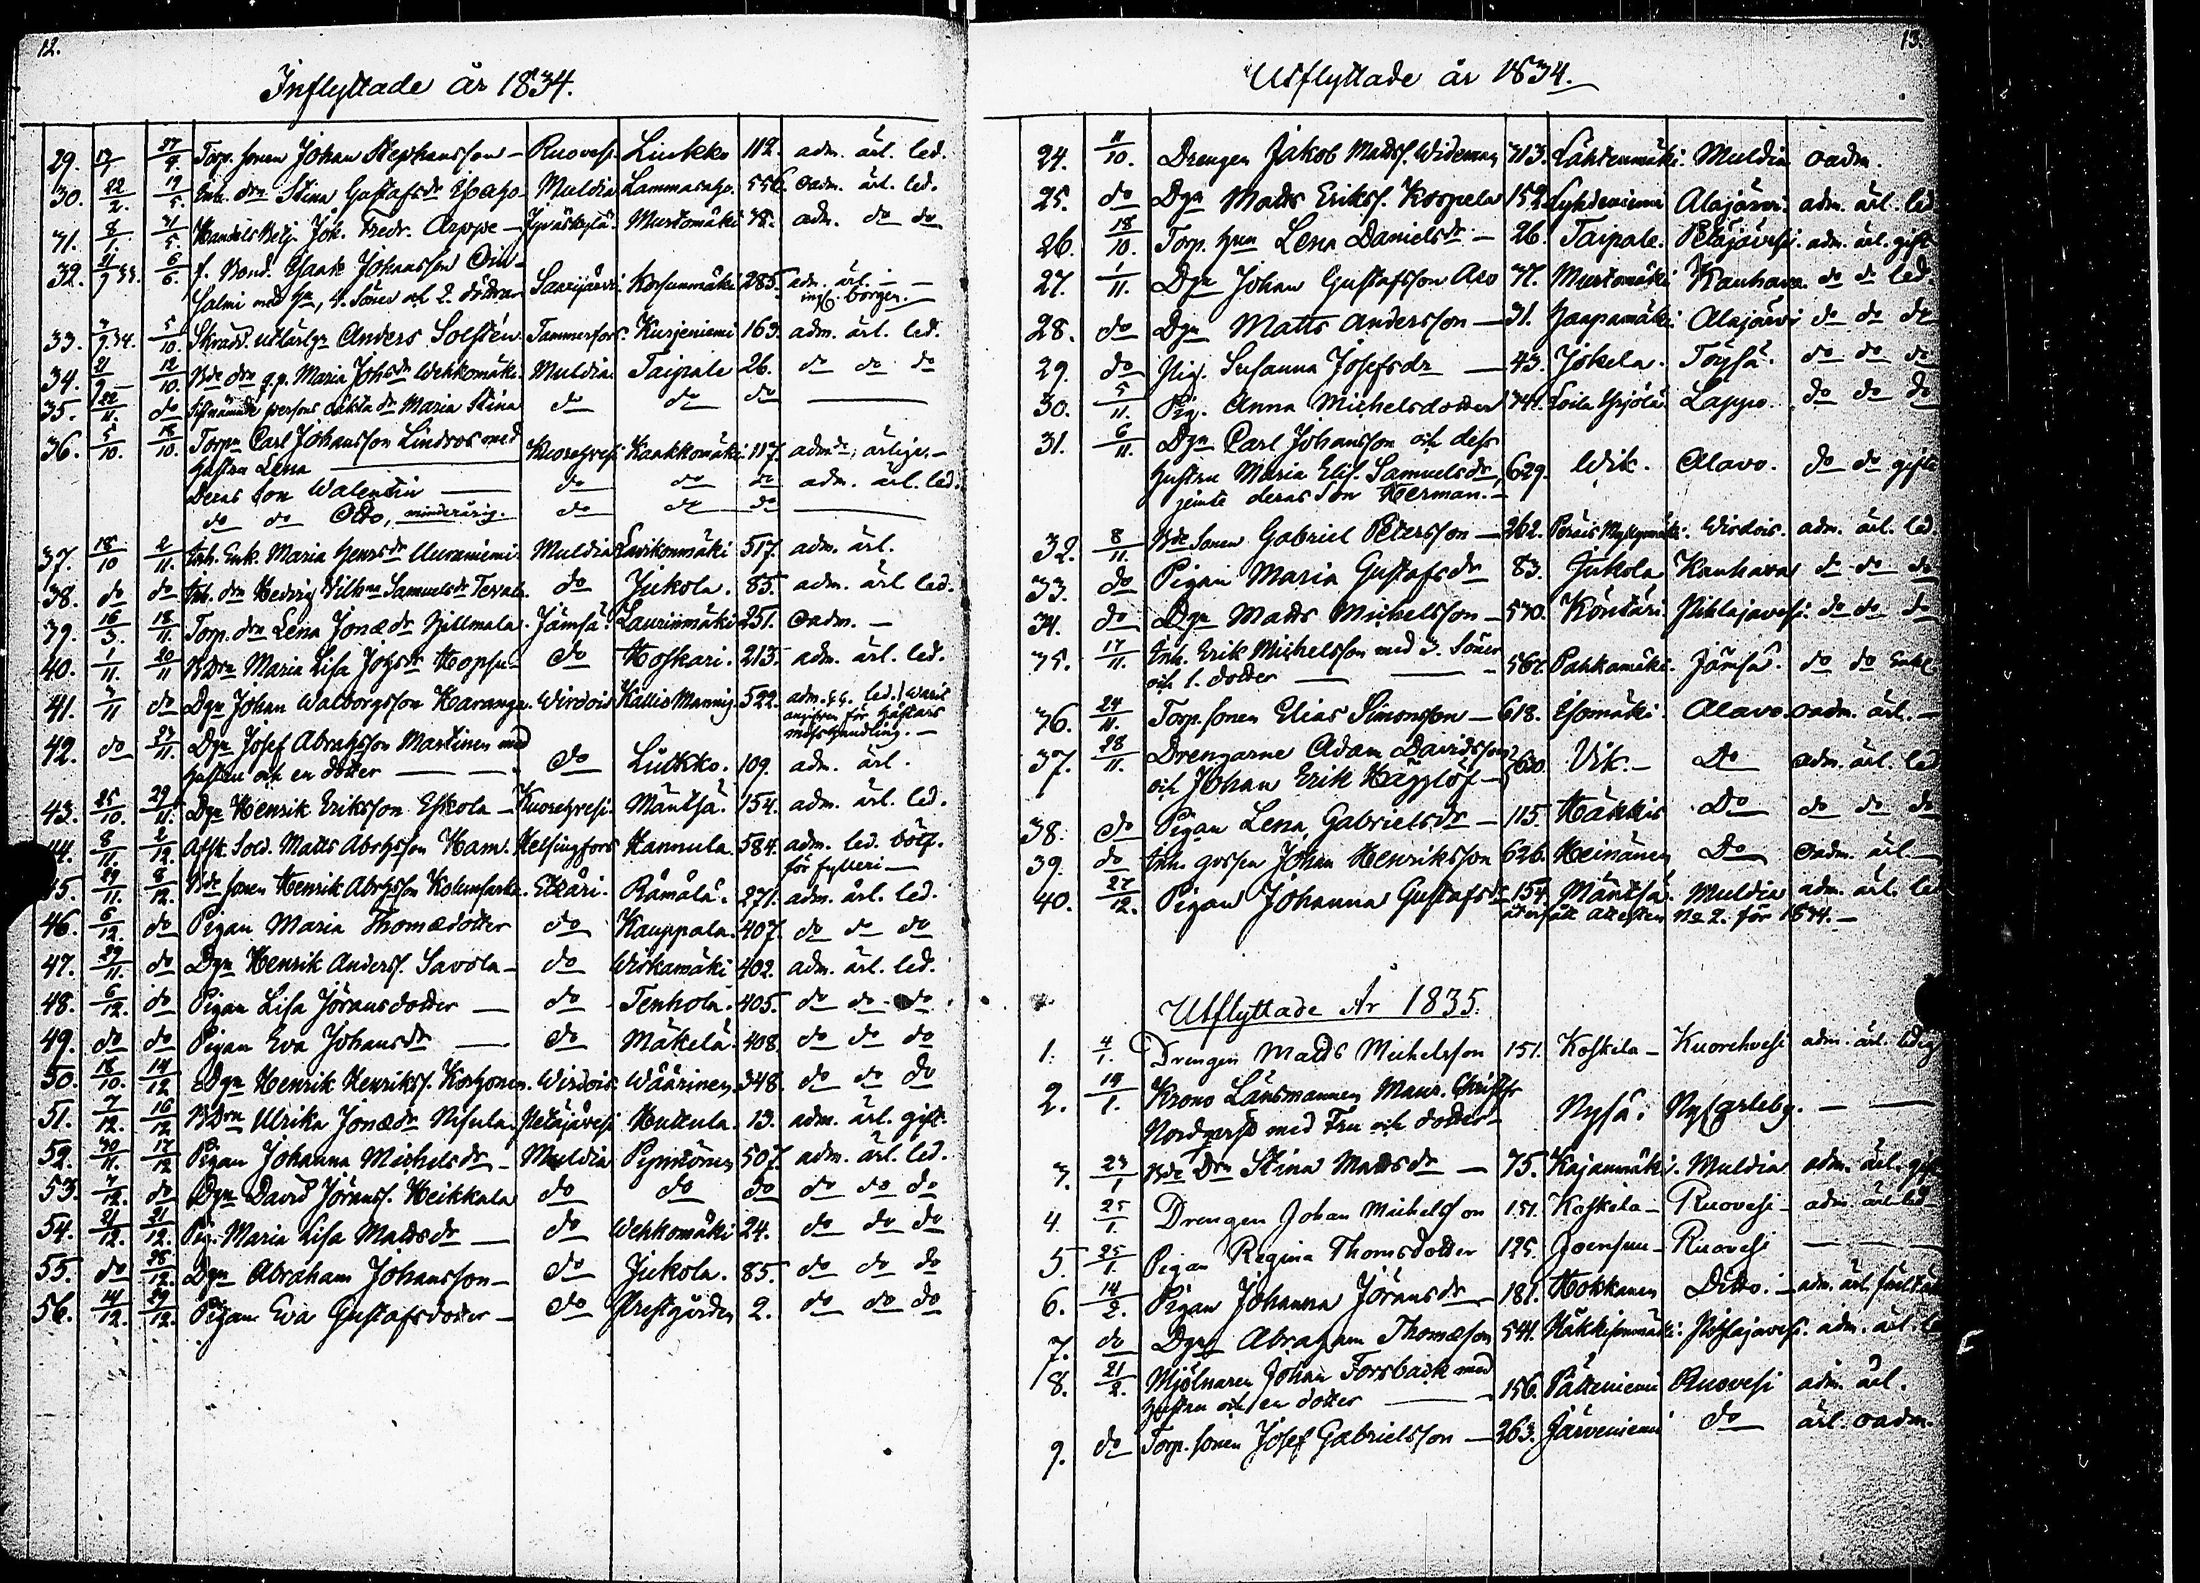 12.
Inflyttade år 1834.
29. 17/ 27/4. Torp. sonen Johan Stephansson – Ruovesi Liukko 112. adm. ärl. led.
30. 22/2. 19/5. Inh. drn Stina Gustafsdr Isoaho Muldia Lammasaho. 556. oadm. ärl. led.
31. 8/ 31/5. Handels Betj. Joh. Fredr. Arppe – Jyväskylä. Murtomäki 78. adm. do do
32. 21/9 33. 6/6. f. Bond. Isaak Johansson Oin-
salmi med Hu, 4. Söner och 2. döttrar Saarijärvi. Korsunmäki 285. adm. ärl. –
ing. borgen. –
33. 7/9 34. 5/10. Skrädd. utlärlge Anders Solstén Tammerfors. Kurjeniemi 163. adm. ärl. led.
34. 21/9 – 12/10. Bde drn q.p. Maria Johsdr Wehkomäki Muldia. Taipale 26. do do do
35. 22/11. do Sistnämde persons oäkta dr Maria Stina do do do
36. 5/10. 18/10. Torpn Carl Johansson Lindroos med
hustru Lena Kuorehvesi Kaakkomäki 117. admde, ärlige, –
Deras Son Walentin do do do adm. ärl. led.
do do Otto, minderårig. do do do
37. 18/10 2/11. Inh. Enk. Maria Henrsdr Uuraniemi. Muldia Savikonmäki 517. adm. ärl.
38. do do Inh. drn Hedvig Vilhna Samuelsdr Tevala. do Jukola. 85. adm. ärl led.
39. 16/3. 18/11. Torp. drn Lena Jonædr Hillmala. Jämsä. Laurinmäki 251. oadm. –
40. 1/11. 20/11 Bdrn Maria Lisa Johsdr Hopsu – do Koskari. 213. adm. ärl. led.
41. 7/11 do Dgn Johan Walborgsson Haranga. Wirdois Kallis Mannig. 522. adm. led. / warit
angifven för hästars
misshandling. –
42. do 23/11. Dgn Josef Abrahsson Martinen med
hustru och en dotter do Liukko. 109. adm. ärl.
43. 25/10. 29/11. Dgn Henrik Eriksson Eskola – Kuorehvesi. Mäntsä. 154. adm. ärl. led.
44. 8/11. 2/12. Afsk. Sold. Matts Abrhsson Ham. Helsingfors Hannula. 584. adm. led. bötf.
för fylleri –
45. 29/11. 8/12. Bde sonen Henrik Abrhsson Kolunsarka. Etseri. Rämälä. 271. adm. ärl. led.
46. 6/12. do Pigan Maria Thomædotter do Kauppala. 407. do do do
47. 29/11. do Dgn Henrik Anderss. Savola – do Wiskamäki 402. adm. ärl. led.
48. 6/12. do Pigan Lisa Jöransdotter – do Tenhola. 405. do do do
49. do do Pigan Eva Johansdr – do Mäkelä. 408. do do do
50. 18/10. 14/12 Dgn Henrik Henrikss. Korhonen. Wirdois. Wäärinen. 348. do do do
51. 7/12. 16/12 Bdrn Ulrika Jonædr Nisula. Petäjävesi Huttula. 13. adm. ärl. gift.
52. 30/11. 17/12 Pigan Johanna Michelsdr – Muldia Pynnönen 507. adm. ärl. led.
53. 7/12. do Dgn David Jöranss. Heikkala do do do do do do
54. 21/12. 21/12. Pig. Maria Lisa Mattsdr – do Wehkomäki 24. do do do
55. do 28/12. Dgn Abraham Johansson – do Jukola. 85. do do do
56. 14/12. 29/12. Pigan Eva Gustafsdotter – do Prestgården 2. do do do
13.
Utflyttade år 1834.
24. 11/10. Drengen Jakob Mattss. Wideman 713. Lähteenmäki. Muldia oadm.
25. do Dgn Matts Erikss. Korpela 152. Lyhdeniemi Alajärvi. adm. ärl. led
26. 18/10. Torp. Hun Lena Danielsdr – 26. Taipale. Petäjävesi. adm. ärl. gift
27. 1/11. Dgn Johan Gustafsson Aro 77. Murtomäki Kauhava. do do led.
28. do Dgn Matts Andersson – 31. Haapamäki. Alajärvi do do do
29. do Pig. Susanna Josefsdr – 43. Jokela. Töysä. do do do
30. 5/11. Pig. Anna Michelsdotter 741. Loila Yrjölä. Lappo. do do do
31. 6/11. Dgn Carl Johansson och dess
hustru Maria Elis. Samuelsdr 629. Wik. Alavo. do do gifte
jemte deras Son Herman. –
32. 8/11. Bde sonen Gabriel Petersson – 262. Peräis Myllymäki. Wirdois. adm. ärl. led.
33. do Pigan Maria Gustafsdr 83. Jukola Kauhava do do do
34. do Dgn Matts Michelsson – 530. Köntäri. Pihlajavesi. do do do
35. 17/11. Inh. Erik Michelsson med 3. Söner
och 1. dotter – 567. Pahkamäki. Jämsä. do do Enkl.
36. 24/11. Torp. sonen Elias Simonsson – 618. Isomäki. Alavo. oadm. ärl. –
37. 28/11. Drengarne Adam Davidsson
och Johan Erik Hägglöf – 630. Vik. – Do adm. ärl. led
38. do Pigan Lena Gabrielsdr – 115. Häkkis Do do do do
39. do Inh. gossen Johan Henriksson 626. Heinänen Do oadm. ärl. –
40. 27/12. Pigan Johanna Gustafsdr 154. Mäntsä. Muldia adm. ärl. led
återfått attesten No 2. för 1834. –
Utflyttade År 1835.
1. 4/1. Drengen Matts Michelsson 151. Koskela – Kuorehvesi adm. ärl. ledig
2. 19/1. Krono Länsmannen Maur. Christfr
Nordqvist med Fru och dotter – Nyså. Nycarleby. – –
3. 23/1 Bde Drn Stina Mattsdr – 75. Kajanmäki. Muldia adm. ärl. gift
4. 25/1. Drengen Johan Michelsson 151. Koskela – Ruovesi – adm. ärl led
5. 25/1. Pigan Regina Thomsdotter 125. Joensuu – Ruovesi –
6. 14/2. Pigan Johanna Jöransdr – 181. Hokkanen Ditto. – adm. ärl.
7. do Dgn Abraham Thomæson 541. Häkkisenmäki. Pihlajavesi. adm. ärl. l
8. 21/2. Mjölnaren Johan Forsback med
hustru och en dotter – 156. Pätteniemi Ruovesi adm. ärl.
9. do Torp. sonen Josef Gabrielsson – 263. Järveniemi do ärl. oadm.